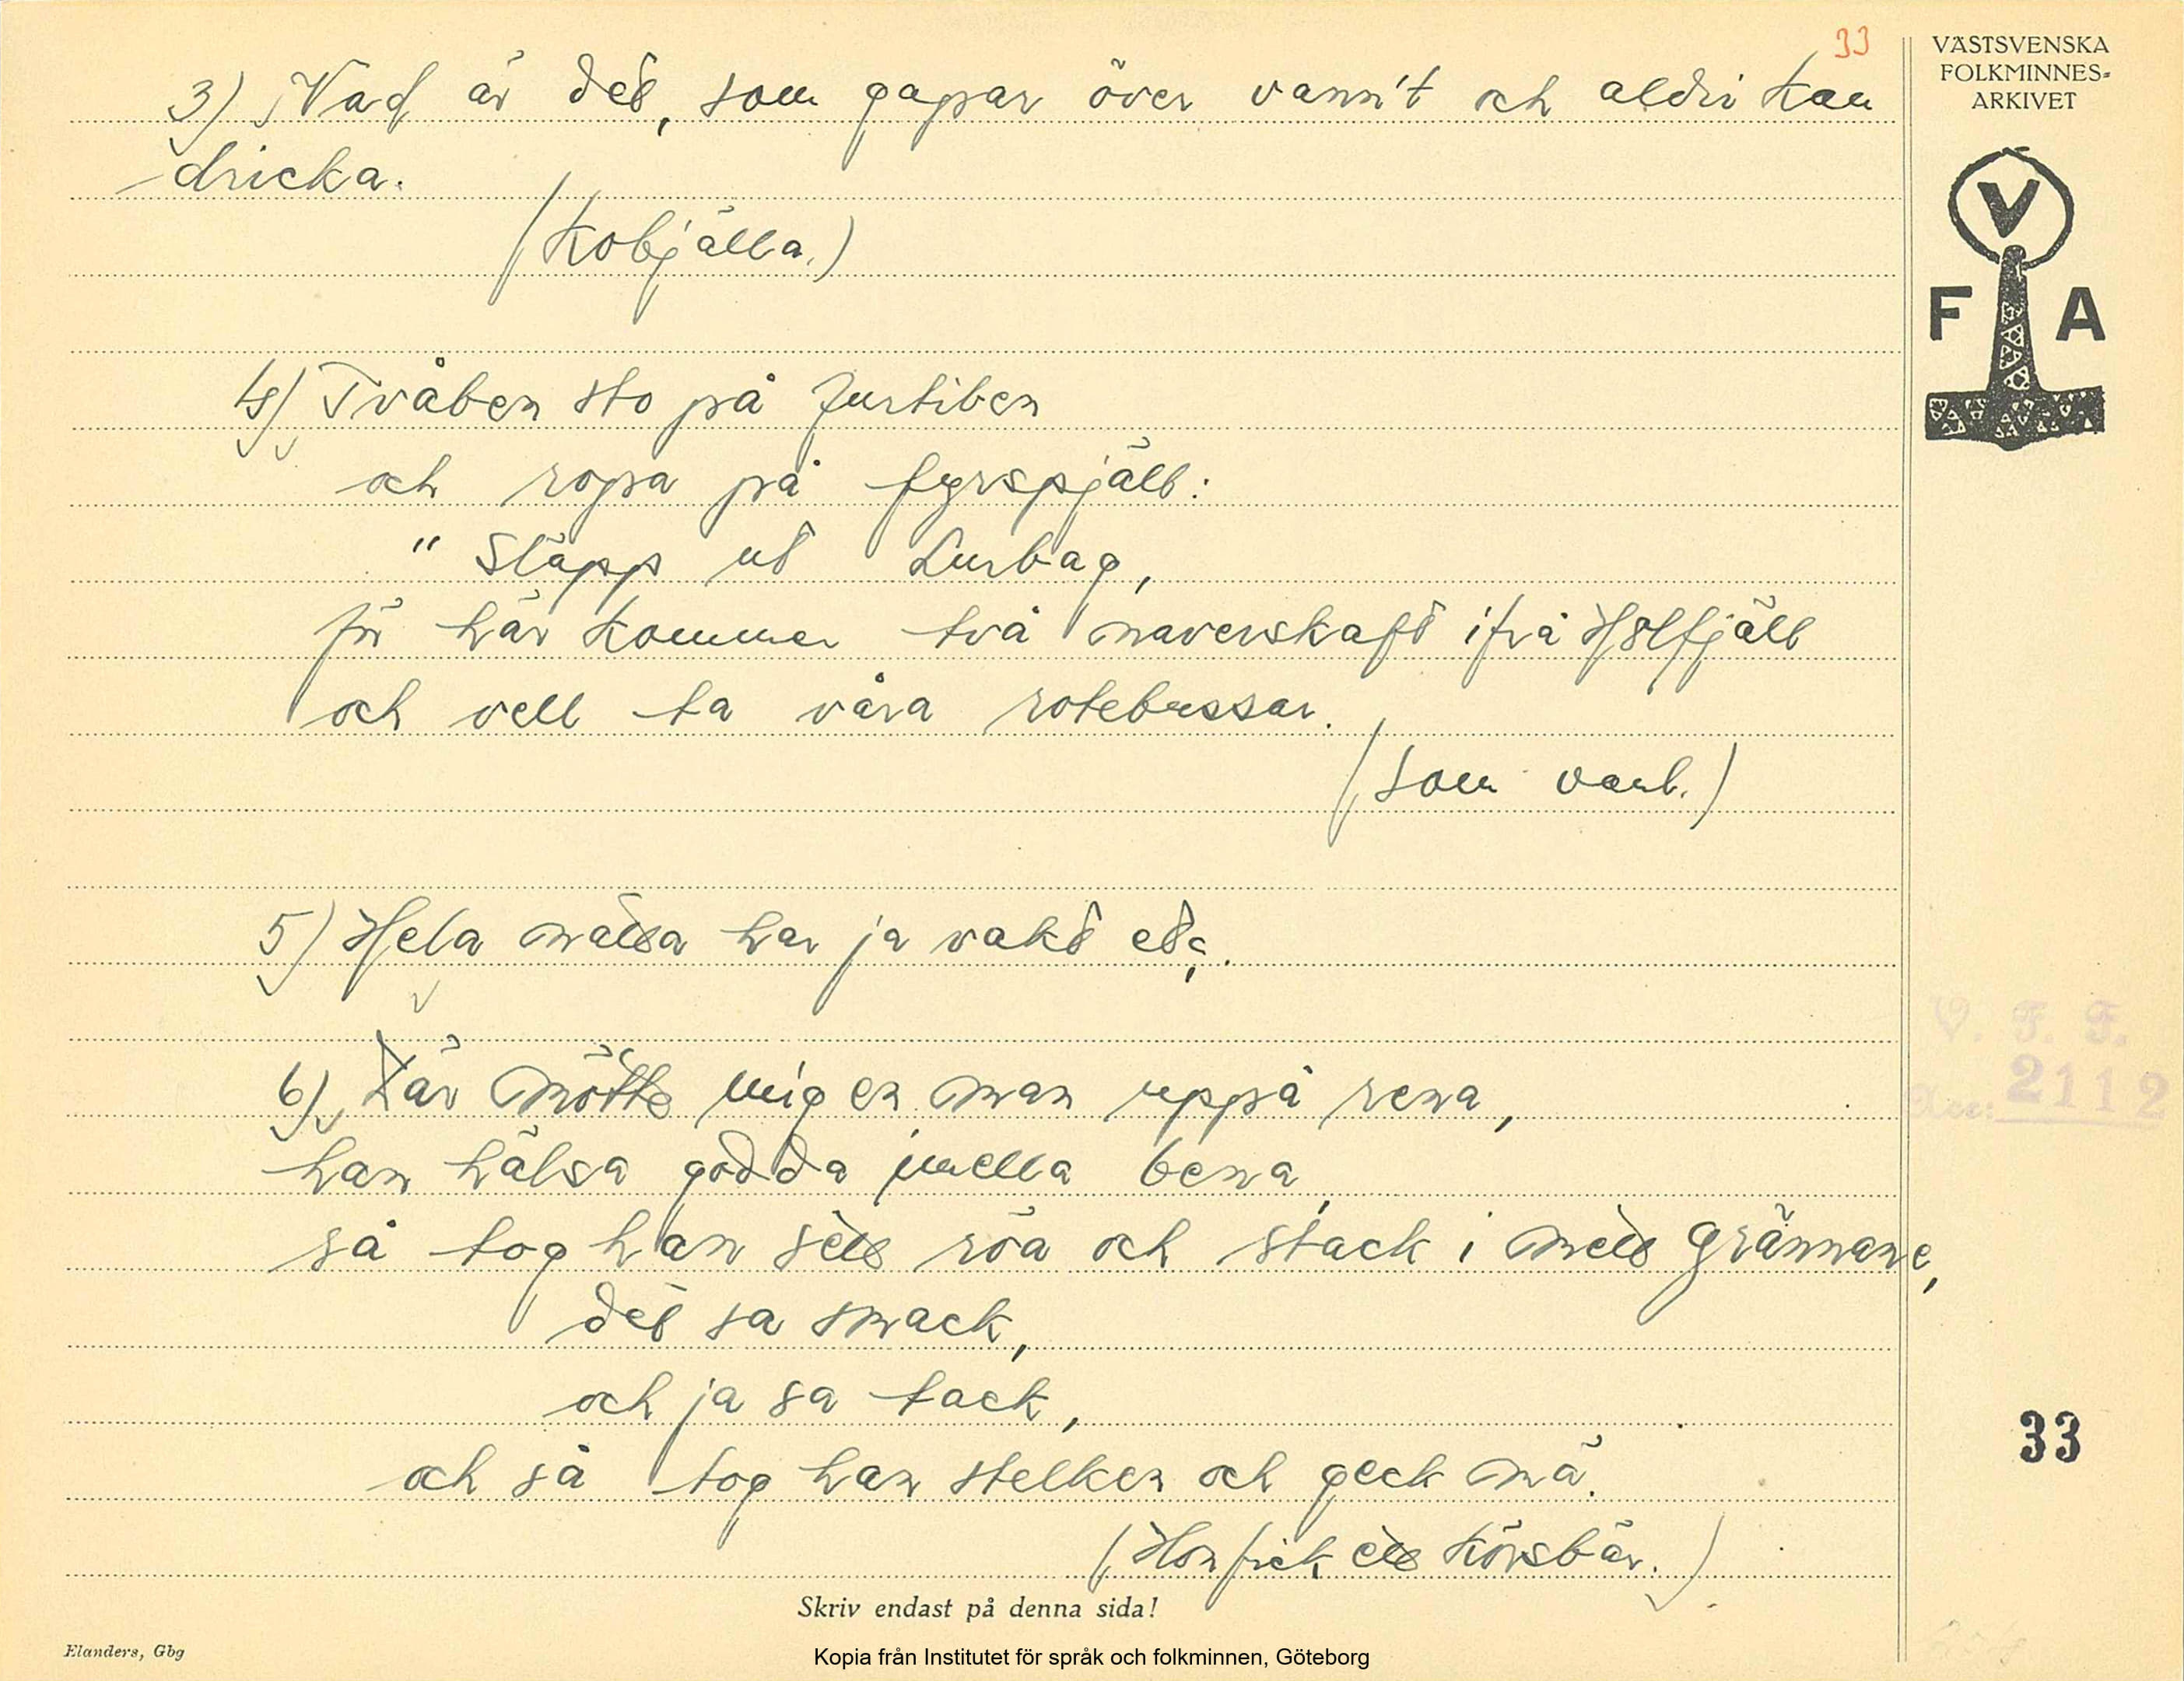 33
VÄSTSVENSKA
FOLKMINNES-
ARKIVET
3) Vad är det, som gapar över vann't och aldri kan
dricka.
(Kobjälla.)
V
F A
4) Tvåben sto på furtiben
och ropa på fyrspjäll:
"Släpp ut Lurbag,
för här kommer två naverskaft ifrå Hölfjäll
och vell ta våra rotebussar.
(som vanl.)
5) Hela natta har ja vakt
6) Där mötte mig en man uppå rena,
han hälsa godda mella bena,
så tog han sett röa och stack i mett grännane,
det sa smack,
och ja sa tack,
och så tog han stelken och geck mä.
(Hon fick ett körsbär.)
V. F. F.
Acc: 2112
33
Skriv endast på denna sida!
Elanders, Gbg
Kopia från Institutet för språk och folkminnen, Göteborg